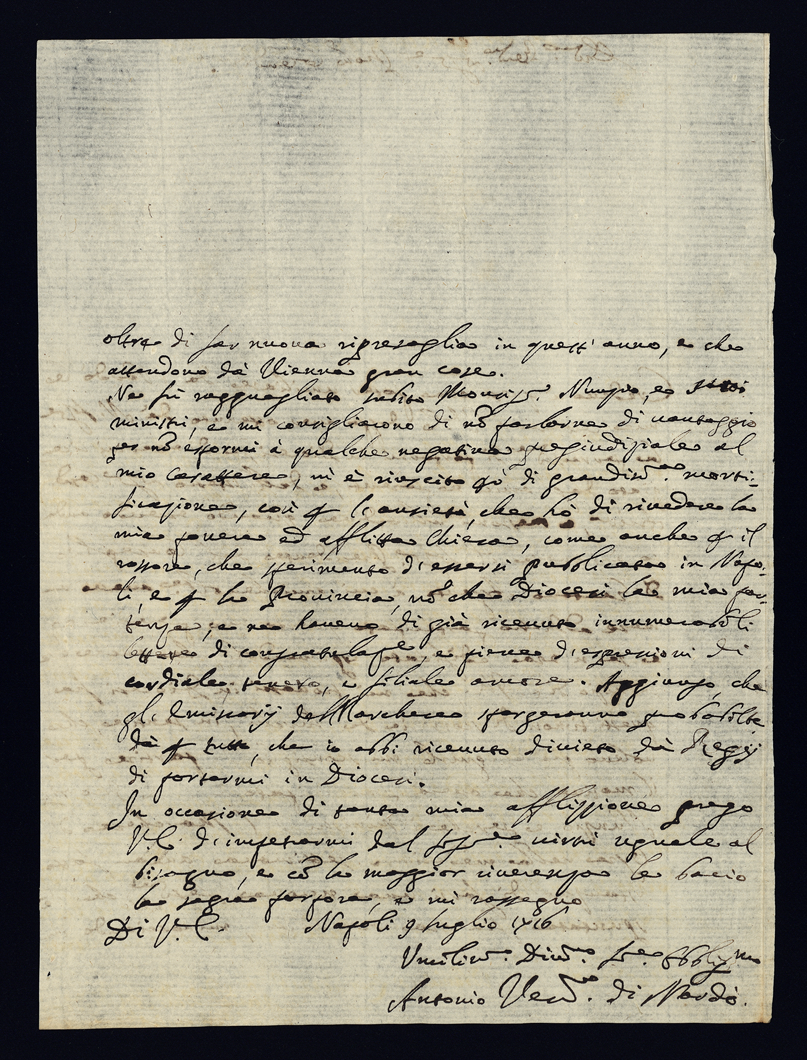 oltre di far nuova ripresaglia in quest'anno, e che
attendono da Vienna gran cose.
Ne fù ragguagliato subito Monsigr. Nunzio, e
ministri, e mi consigliarono di nõ parlarne di vantaggio
per nõ espormi à qualche negativa pregiudiziale al
mio carattere, mi è riuscito di grandismo. morti-
ficazione, così l'ansietà, che hò di rivedere la
mia povera ed afflitta Chiesa, come anche il
rossore, che sperimento d'essersi pubblicata in Napo-
li, e la Provincia, Diocesi la mia par-
tenza, e ne havevo di già ricevuto innumerabili
lettere di, e piene d'espressioni di
cordiale tenero, e filiale amore. Aggiungo, che
gl'Emissarij del Marchese spargeranno
da tutto, che io abbi ricevuto divieto dà Regij
di portarmi in Diocesi.
In occasione di tanta mia afflizzione prego
V.E. d'impetrarmi dal virtù uguale al
bisogno, e cõ la maggior riverenza le bacio
la sagra porpora, e mi rassegno
Di V.E. Napoli 9 luglio 1716
Umilism. Divm. Obbligmo
Antonio Vesc. di Nardò.